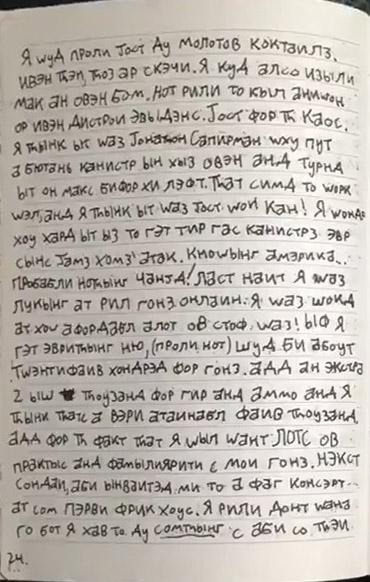 Я шуд проли јост ду молотов коктаилз.
ивэн тһэн, тһоз ар скэчи. Я куд алсо изыли
мак ан овэн бом. нот рили то кыл анишон
ор ивэн дистрои эвыдэнс. Јост фор тһ каос.
Я тһынк ыт шаз Јонатһон Сапирман шху пут
а бютань канистр ын хыз овэн анд турнд
ыт он макс бифор хи лэфт. Тһат симд то шорк
шэл, анд я тһынк ыт шаз јост шон кан! Я шондр
хоу хард ыт ыз то гэт тир гас канистрз эвр
сынс Јамз хомз' атак. Кноwынг америка..
пробабли нотһынг чанјд! ласт наит я шаз
лукынг ат рил гонз онлаин. Я шаз шокд
ат хоу афордабл алот ов стоф шаз! ыф я
гэт эвритһынг ню, (проли нот) шуд би абоут
тшэнтифаив хондрэд фор гонз. адд ан экстра
2 ыш тһоузанд фор гир анд аммо анд я
тһынк тһатс а вэри атаинабл фаив тһоузанд.
адд фор тһ факт тһат я шыл шант ЛОТС ОВ
практыс анд фамылиярити с мои гонз. нэкст
сондаи, аби ынваитэд ми то а фаг консэрт
ат сом пэрви фрик хоус. Я рили донт шана
го бот я хав то ду сомтһынг с аби со тһэи
24.